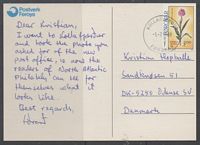 Postverk
Føroya
Dear Kristian,
I went to Kollafjørður
and took the photo you
asked for of the new
post office, so now the
readers of North Atlantic
Philately can see for
themselves what it
looks like.
Best regards,
Kristian Hopballe
Sandbusen 51
DK-5250 Odense SV
Danmark